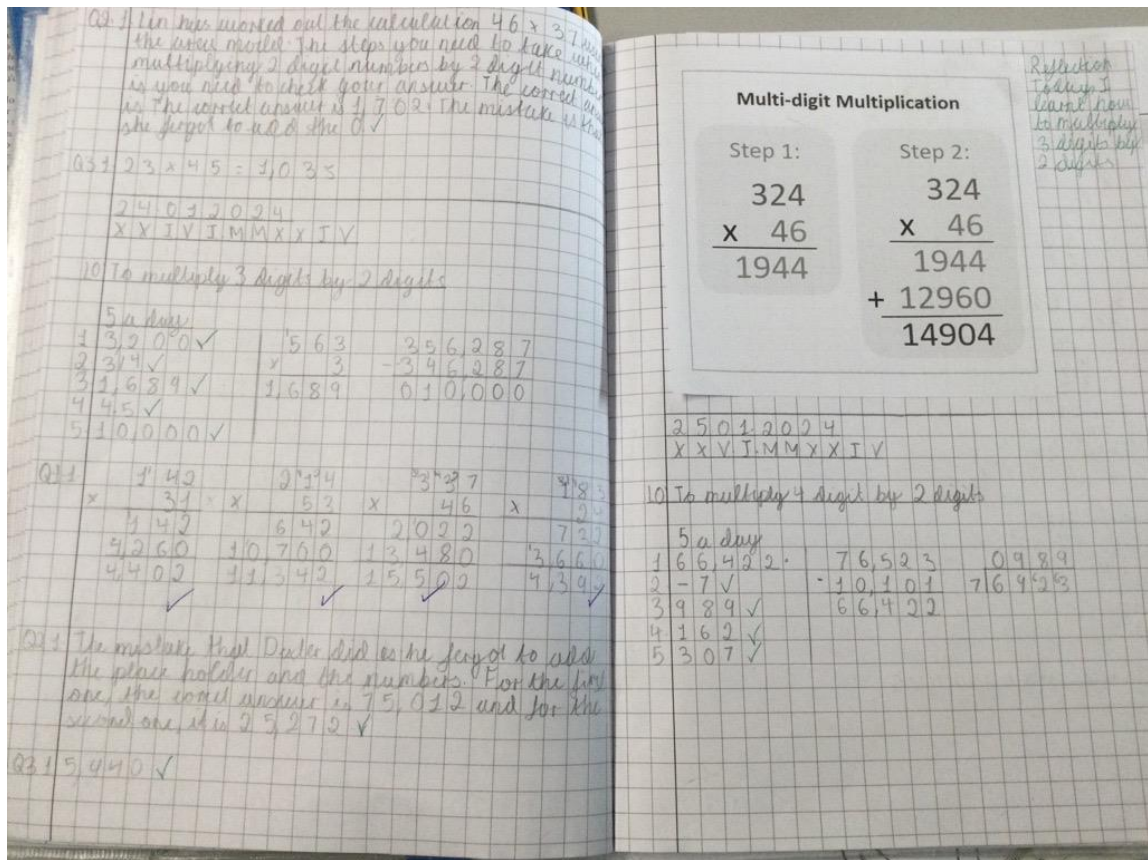 Q2 1 Lin has worked out the calculation 46 x 37
the area model. The steps you need to take when
multiplying 2 digit numbers by 2 digit
is you need to check your answer. The correct
is The correct answer is 1,702. The mistake is that
she forgot to add the 0 ✓
Q3 1 23 x 45 = 1,035
24012024
XXIVIMMXXIV
10 To multiply 3 digits by 2 digits
5 a day
1 3,200 ✓
2 314 ✓
3 1,689 ✓
4 45 ✓
5 10,000 ✓
563
x 3
1,689
356,287
- 346,287
010,000
Q1 1
142
x 31
142
4,260
4,402
✓
214
x 53
642
10 700
11 342
✓
337
x 46
2022
13 480
15 502
✓
183
x 2
732
3660
4,392
✓
Q2 1 The mistake that Dexter did is he forgot to add
the place holder and the numbers. For the first
one, the correct answer is 75,012 and for the
second one, it is 25,272 ✓
Q3 1 5,440 ✓
Multi-digit Multiplication
Step 1:
324
x 46
1944
Step 2:
324
x 46
1944
+ 12960
14904
Reflection
Today I
learnt how
to multiply
3 digits by
2 digits
25012024
XXVIMMXXIV
10 To multiply 4 digit by 2 digits
5 a day
1 66,422 .
2 -7 ✓
3 989 ✓
4 162 ✓
5 307 ✓
76,523
- 10,101
66,422
0989
7 6923